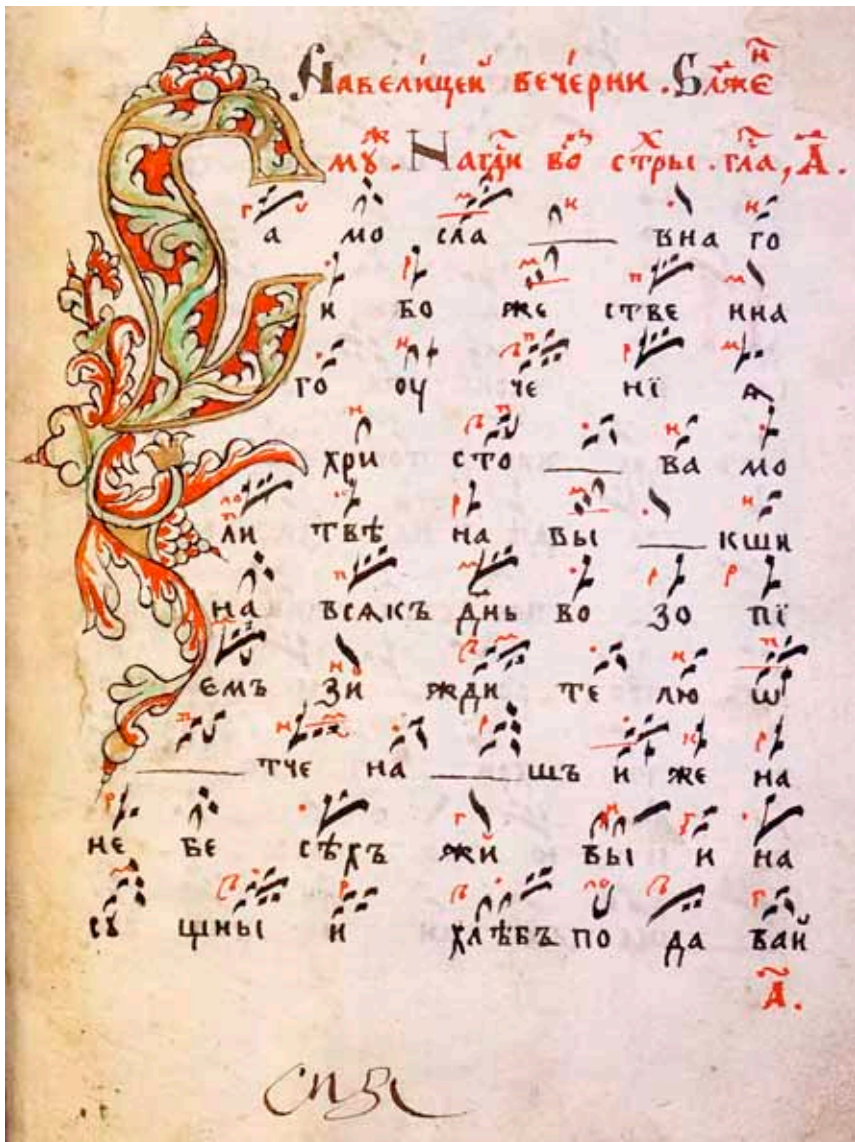 Навели́цеи вече́рни . Бл҃же́н
му́ж . На гд҇и во́з стр҇ы х . гл҇а , а҃ .
С а мо сла ___ вна го
и бо же стве нна
го оу че нї ѧ
хри сто ___ ва мо
ли твѣ на вы ___ кши
на всѧкъ дн҃ь во зо пї
емъ зи жди те лю ѡ
___ тче на ___ шъ и же на
не бе сѣхъ жи вы и на
сѫ щны и хлѣбъ по да вай
а҃ .